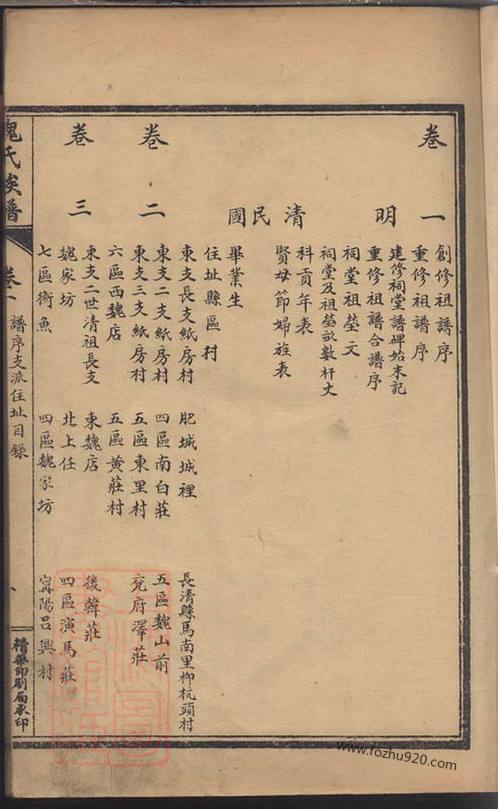 卷一
創修祖譜序
重修祖譜序
建修祠堂譜碑始末記
重修祖譜合譜序
明
祠堂祖塋文
祠堂及祖塋畝數杆丈
科貢年表
清
賢母節婦旌表
民國
畢業生
住址縣區村
卷二
東支長支紙房村 肥城城裡 長清縣馬南里柳杭頭村
東支二支紙房村 四區南白莊 五區魏山前
東支三支紙房村 五區東里村 兗府澤莊
六區西魏店 五區黄莊村
卷三
東支二世清祖長支 東魏店 後韓莊
魏家坊 北上任 四區演馬莊
七區衡魚 四區魏家坊 甯陽呂興村
魏氏族譜 卷一 譜序支派住址目錄 精華印刷局承印
www.fozhu920.com